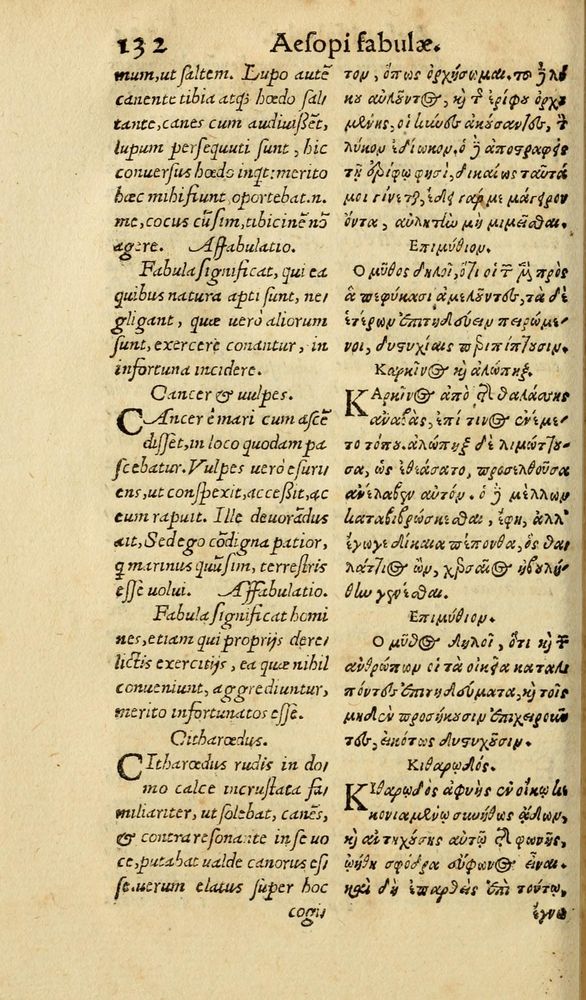 132 Aesopi fabulæ.
mum, ut saltem. Lupo autē
canente tibia atq; hœdo sal
tante, canes cum audiuißēt,
lupum persequuti sunt, hic
conuersus hœdo inqt: merito
hæc mihi fiunt, oportebat.n.
me, cocus cū sim, tibicinē nō
agere. Affabulatio.
Fabula significat, qui ea
quibus natura apti sunt, ne/
gligant, quæ uerò aliorum
sunt, exercere conantur, in
infortuna incidere.
Cancer & uulpes.
CAncer è mari cum ascē
disset, in loco quodam pa
scebatur. Vulpes uerò esuri
ens, ut conspexit, acceßit, ac
eum rapuit. Ille deuorādus
ait, Sed ego cōdigna patior,
q marinus quū sim, terrestris
esse uolui. Affabulatio.
Fabula significat homi
nes, etiam qui proprijs dere/
lictis exercitijs, ea quæ nihil
conueniunt, aggrediuntur,
merito infortunatos esse.
Citharœdus.
CItharœdus rudis in do/
mo calce incrustata fa/
miliariter, ut solebat, canēs,
& contra resonante in se uo
ce, putabat ualde canorus es/
se. uerum elatus super hoc
cogis
τον, ὅπως ὀρχήσωμαι. τοῦ δὲ λύ
κου αὐλοῦντος, καὶ τοῦ ἐρίφου ὀρχου
μένης, οἱ κύνες ἀκούσαντες, τὸν
λύκον ἐδίωκον. ὁ δὲ ἀποστραφεὶς
τῇ ἐρίφῳ φησί, δικαίως ταῦτά
μοι γίνεται, ἔδει γάρ με μάγειρον
ὄντα, αὐλητὴν μὴ μιμεῖσθαι.
Επιμύθιον.
Ο μῦθος δηλοῖ, ὅτι οἱ τῶν μὲν πρὸς
ἃ πεφύκασι ἀμελοῦντες, τὰ δὲ
ἑτέρων ἐπιτηδεύειν πειρώμε/
νοι, δυστυχίαις περιπίπτουσιν.
Καρκῖνος καὶ ἀλώπηξ.
ΚΑρκῖνος ἀπὸ τῆς θαλάσσης
ἀναβὰς, ἐπί τινος ἐνέμε/
το τόπου. ἀλώπηξ δὲ λιμώττου/
σα, ὡς ἐθεάσατο, προσελθοῦσα
ἀνέλαβεν αὐτόν. ὁ δὲ μέλλων
καταβιβρώσκεσθαι, ἔφη, ἀλλ'
ἔγωγε δίκαια πέπονθα, ὃς θα/
λάττιος ὢν, χερσαῖος ἠβουλή/
θην γενέσθαι.
Επιμύθιον.
Ο μῦθος δηλοῖ, ὅτι καὶ τῶν
ἀνθρώπων οἱ τὰ οἰκεῖα καταλι
πόντες ἐπιτηδεύματα, καὶ τοῖς
μηδὲν προσήκουσιν ἐπιχειροῦν
τες, εἰκότως δυστυχοῦσιν.
Κιθαρῳδός.
ΚΙθαρῳδὸς ἀφυὴς ἐν οἴκῳ κε
κονιαμένῳ συνήθως ᾄδων,
καὶ ἀντηχούσης αὐτῷ τῆς φωνῆς,
ᾠήθη σφόδρα εὔφωνος εἶναι.
καὶ δὴ ἐπαρθεὶς ἐπὶ τούτῳ,
ἔγνω